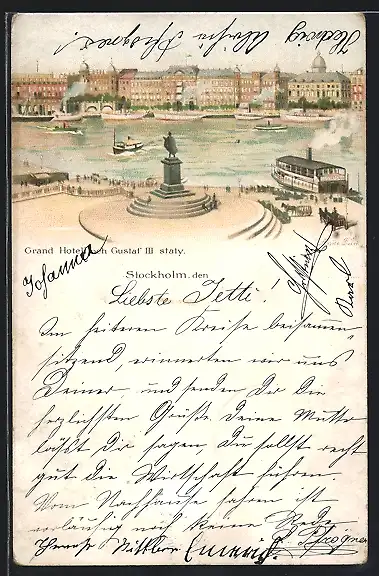 Hedwig
Grand Hotel och Gustaf III staty.
Johanna
Stockholm, den
Liebste Jetti!
Im heiteren Kreise beisammen
sitzend, erinnerten wir uns
Deiner und senden Dir die
herzlichsten Grüße. Deine Mutter
lässt Dir sagen, Du sollst recht
gut die Wirtschaft führen.
Vom Nachhause fahren ist
vorläufig noch keine Rede